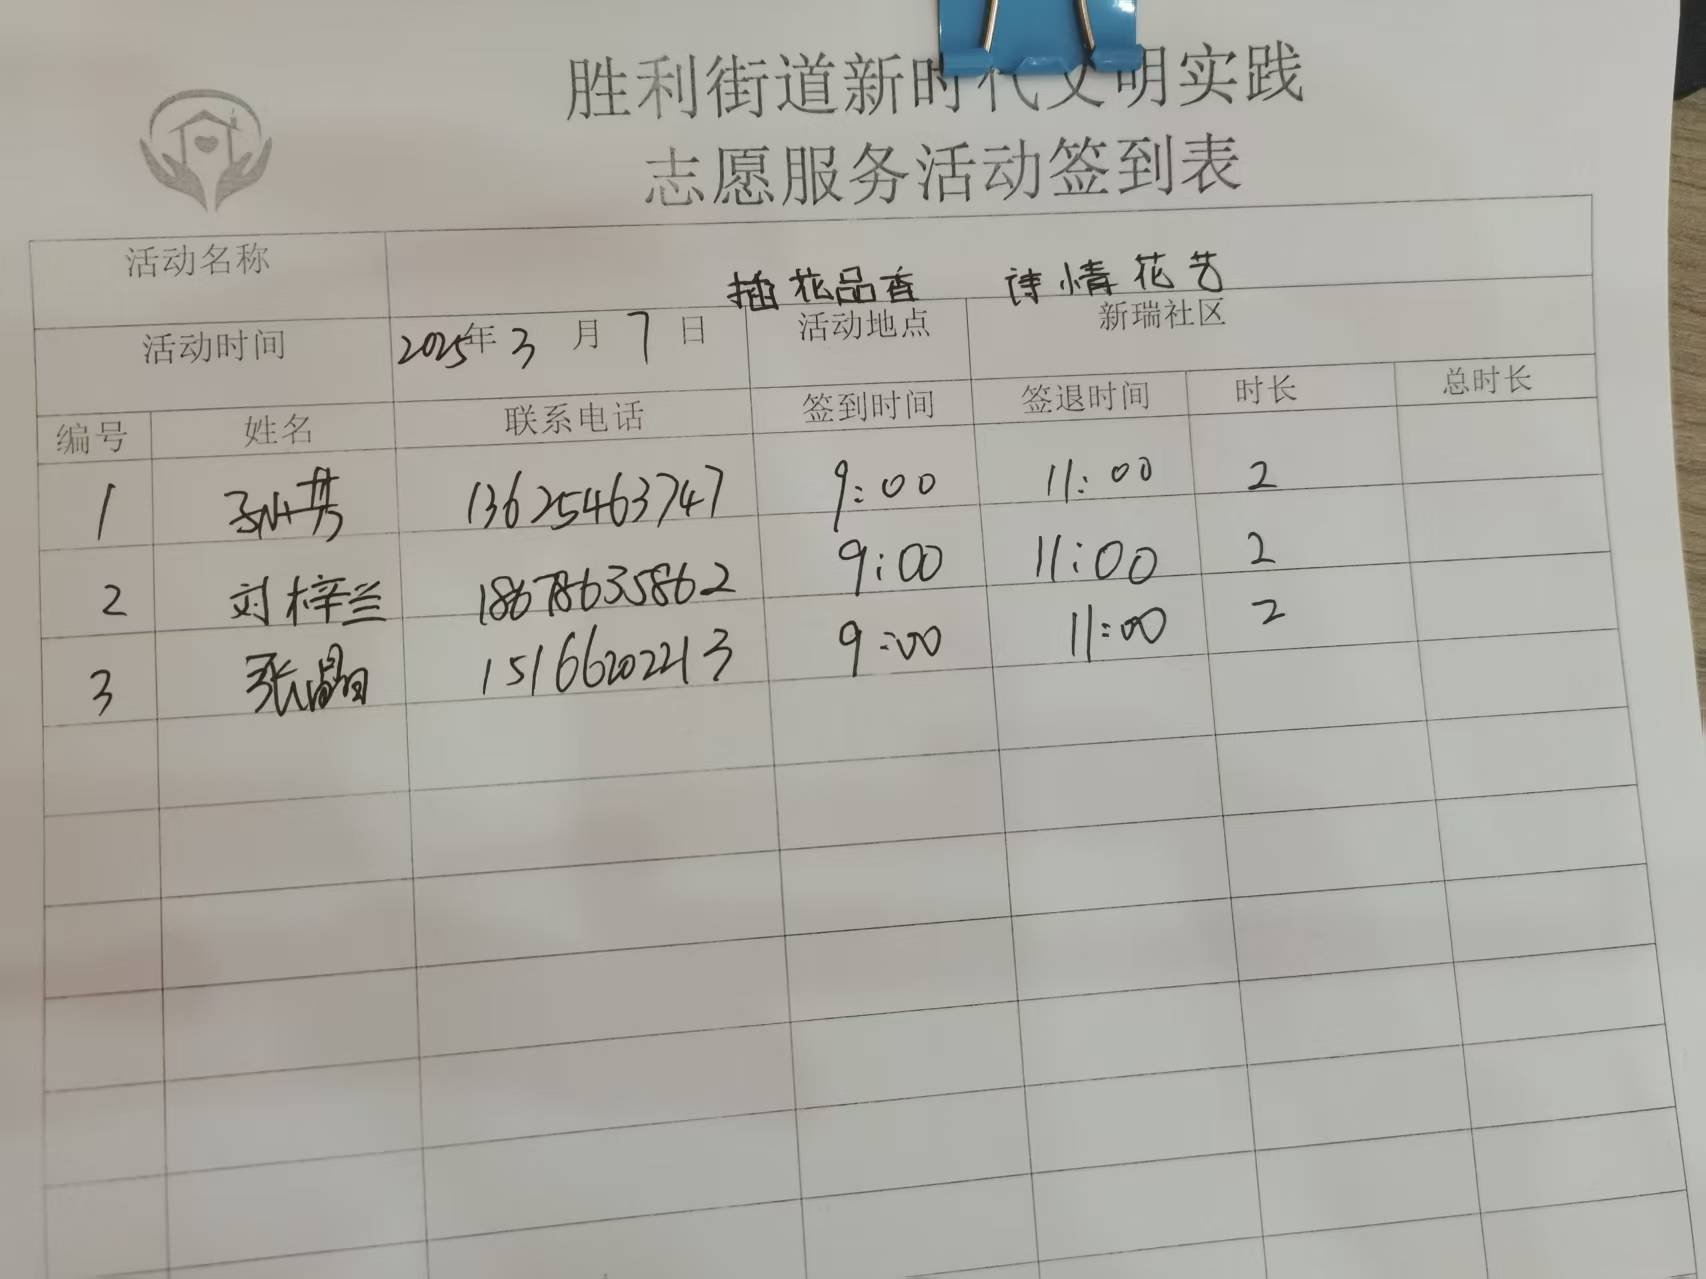 胜利街道新时代文明实践
志愿服务活动签到表
活动名称 插花品香 诗情花艺
活动时间 2025年3月7日 活动地点 新瑞社区
编号 姓名 联系电话 签到时间 签退时间 时长 总时长
1 孙芳 13625463747 9:00 11:00 2
2 刘梓兰 18678635862 9:00 11:00 2
3 张晶 15166202213 9:00 11:00 2